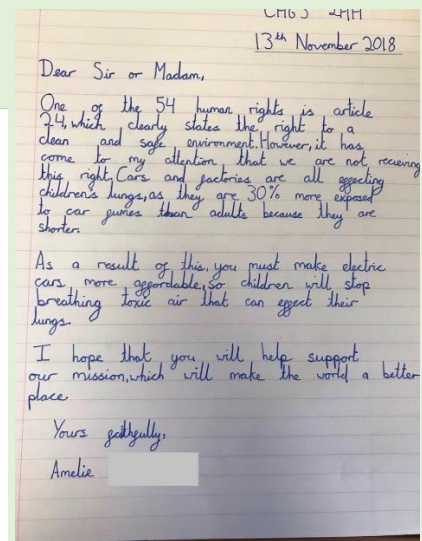 13th November 2018
Dear Sir or Madam,
One of the 54 human rights is article
24, which clearly states the right to a
clean and safe environment. However, it has
come to my attention that we are not recieving
this right. Cars and factories are all effecting
children's lungs, as they are 30% more exposed
to car fumes than adults because they are
shorter.
As a result of this, you must make electric
cars more affordable, so children will stop
breathing toxic air that can effect their
lungs.
I hope that you will help support
our mission, which will make the world a better
place.
Yours faithfully,
Amelie